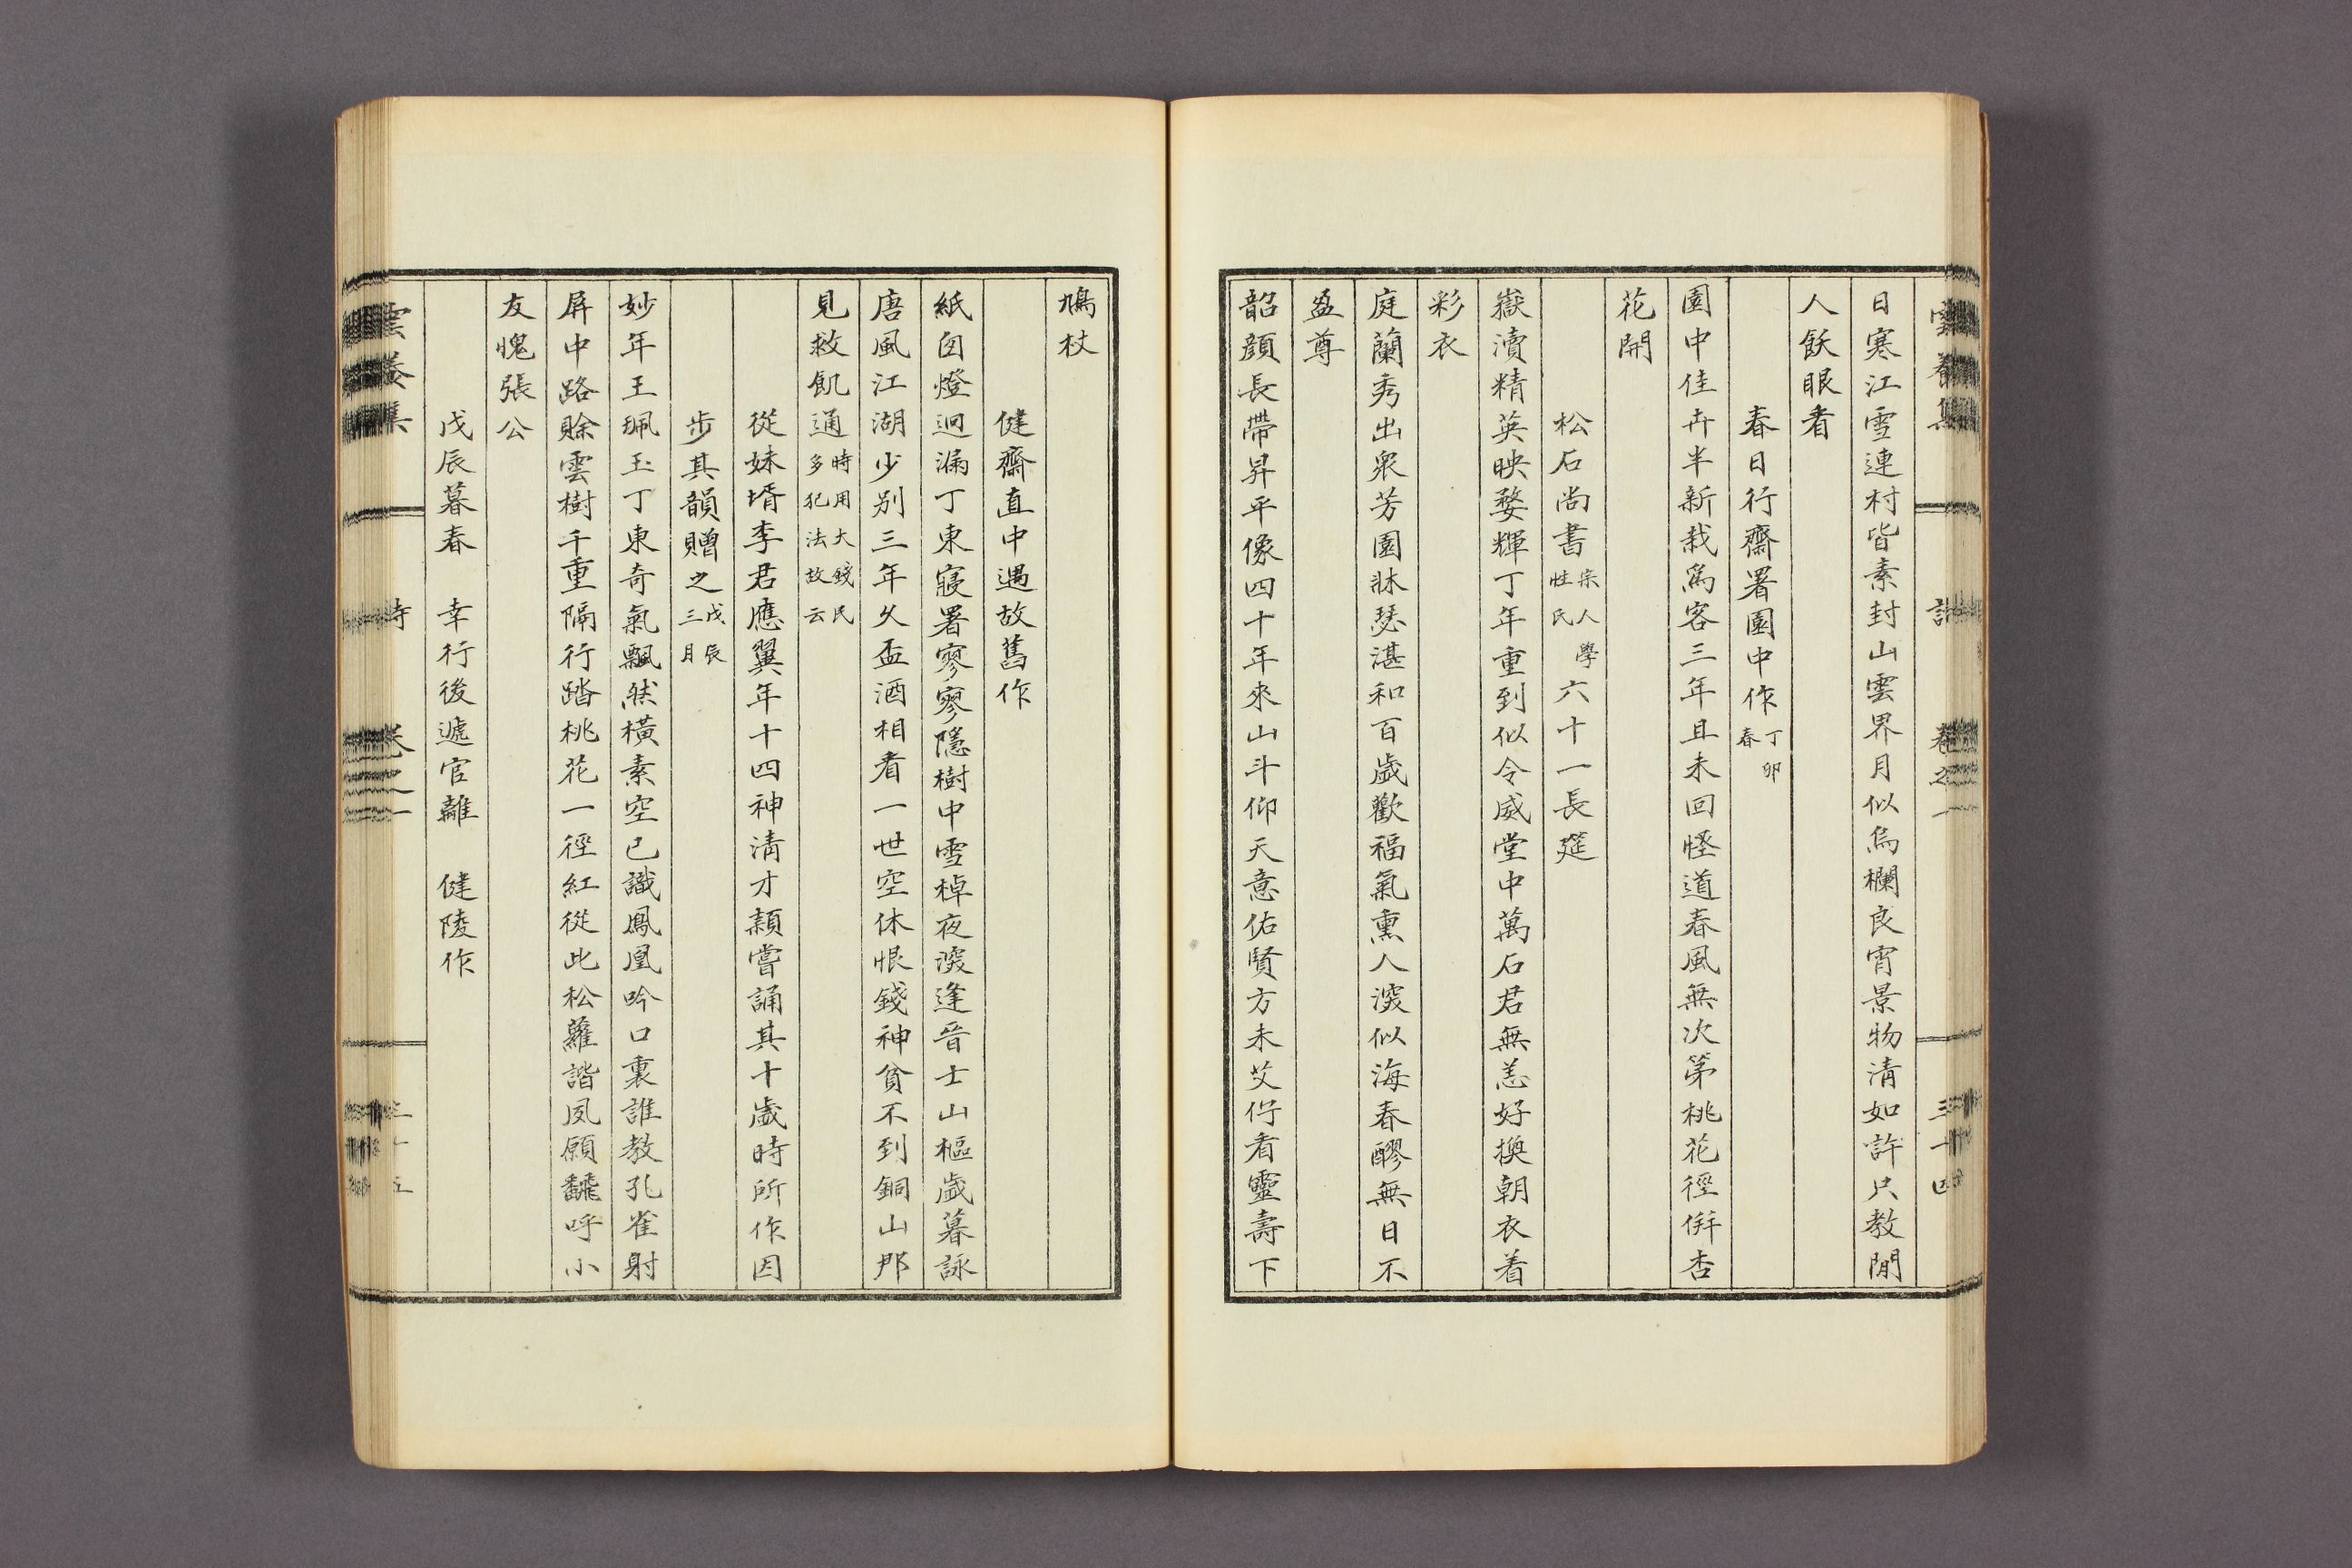 日寒江雪連村皆素封山雲界月似烏欄良宵景物清如許只教閒
人飫眼看
春日行齋署園中作丁卯春
園中佳卉半新栽爲客三年且未回怪道春風無次第桃花徑倂杏
花開
松石尚書宗人性氏學六十一長筵
嶽瀆精英映婺輝丁年重到似令威堂中萬石君無恙好換朝衣着
彩衣
庭蘭秀出衆芳園牀瑟湛和百歲歡福氣熏人深似海春醪無日不
盈尊
韶顔長帶昇平像四十年來山斗仰天意佑賢方未艾佇看靈壽下
鳩杖
健齋直中遇故舊作
紙囪燈迥漏丁東寢署寥寥隱樹中雪棹夜深逢晉士山樞歲暮詠
唐風江湖少別三年久盃酒相看一世空休恨錢神貧不到銅山那
見救飢通時用大錢民多犯法故云
從妹壻李君應翼年十四神淸才頴嘗誦其十歲時所作因
步其韻贈之戊辰三月
妙年王珮玉丁東奇氣飄然橫素空已識鳳凰吟口裏誰教孔雀射
屛中路賖雲樹千重隔行踏桃花一徑紅從此松蘿諧夙願飜呼小
友愧張公
戊辰暮春 幸行後遞官離 健陵作
詩
卷之一
三十四